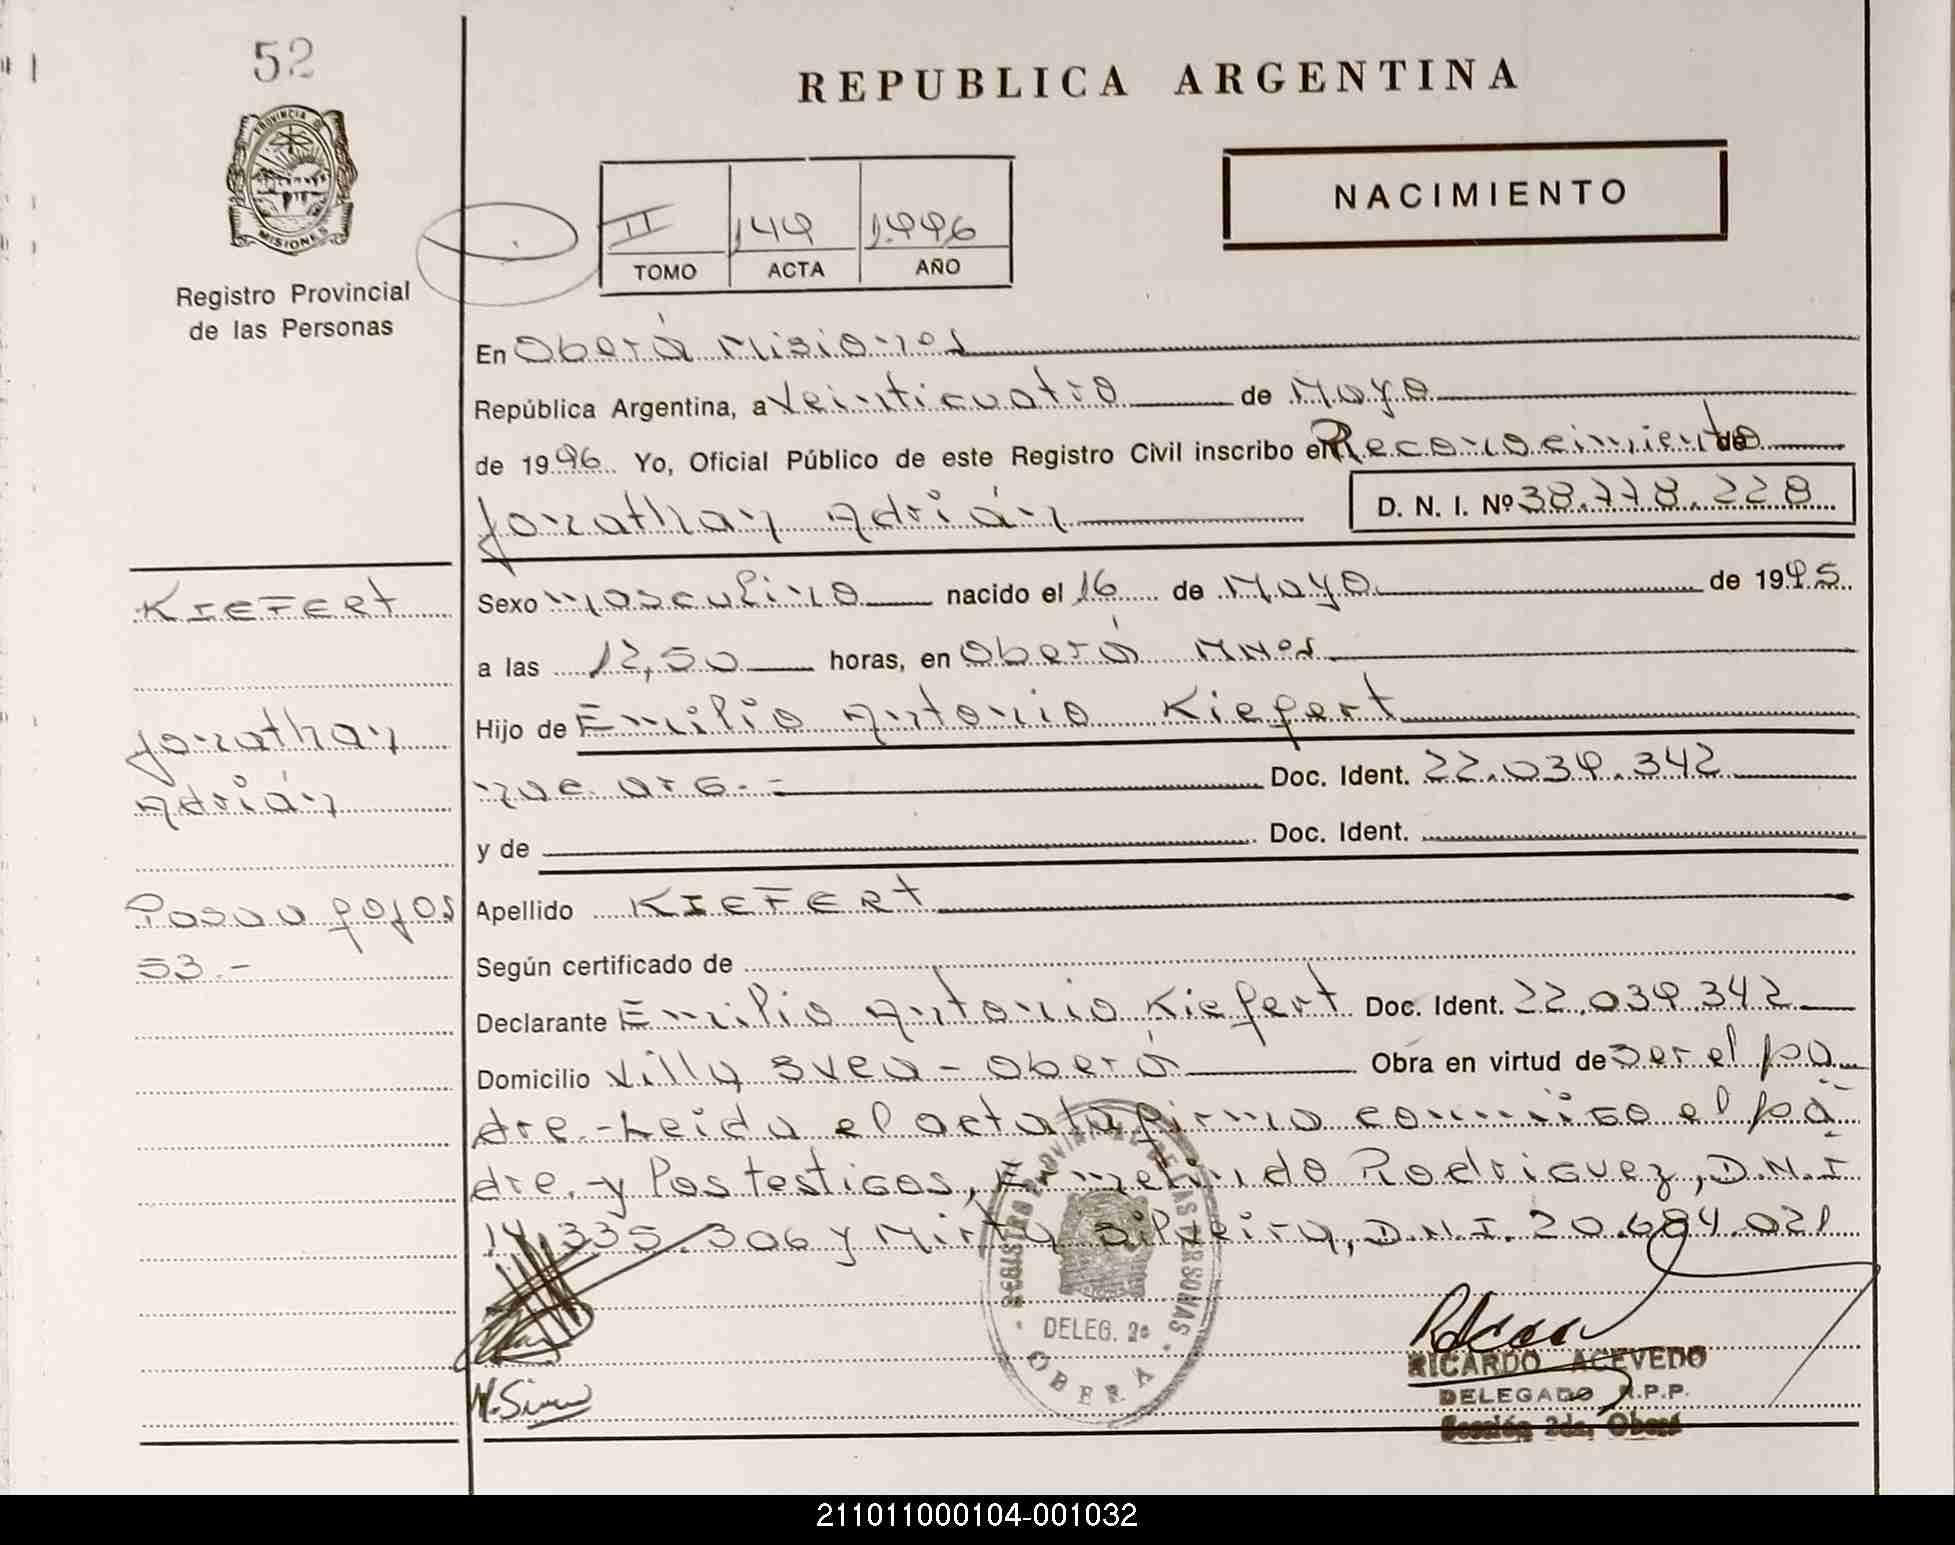 52
REPUBLICA ARGENTINA
PROVINCIA DE
MISIONES
Registro Provincial
de las Personas
II 149 1.996
TOMO ACTA AÑO
NACIMIENTO
En Oberá Misiones
República Argentina, a Veinticuatro de Mayo
de 1996 Yo, Oficial Público de este Registro Civil inscribo el Reconocimiento de
Jonathan Adrián D. N. I. Nº 38.778.228
Kiefert
Sexo masculino nacido el 16 de Mayo de 1995
a las 12,50 horas, en Oberá Mnes
Hijo de Emilio Antonio Kiefert
Jonathan
Adrián
nac. arg.- Doc. Ident. 22.039.342
y de Doc. Ident.
Pasa a fojos
53.-
Apellido Kiefert
Según certificado de
Declarante Emilio Antonio Kiefert Doc. Ident. 22.039.342
Domicilio Villa Svea - Oberá Obra en virtud de ser el pa
dre.-Leida el acta la firma conmigo el pa
dre.-y los testigos, Ermelindo Rodriguez, D.N.I.
14.335.306 y Mirta Silveira, D.N.I. 20.684.021
REGISTRO PROVINCIAL DE LAS PERSONAS
DELEG. 2ª
OBERA
RICARDO ACEVEDO
DELEGADO R.P.P.
Sección 2da. Oberá
211011000104-001032